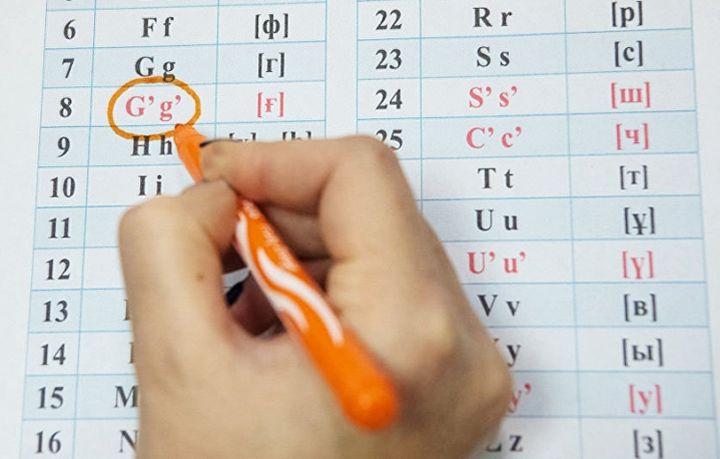 6 F f [ф]
7 G g [г]
8 G’ g’ [ғ]
9 H h
10 I i
11
12
13
14
15 M
16 N
22 R r [р]
23 S s [с]
24 S’ s’ [ш]
25 C’ c’ [ч]
T t [т]
U u [ұ]
U’ u’ [ү]
V v [в]
y [ы]
y’ [у]
z [з]